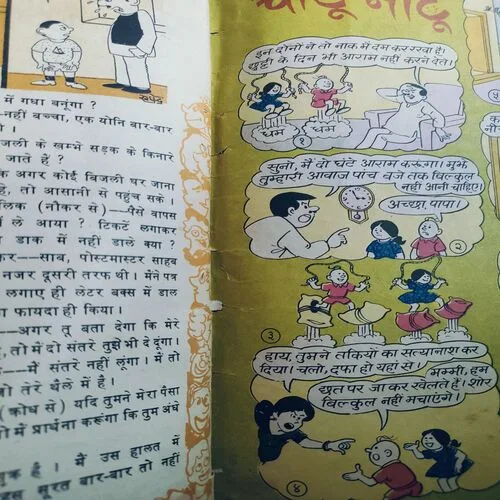 में गधा बनूंगा ?
नहीं बच्चा, एक योनि बार-बार
बिजली के खम्भे सड़क के किनारे
जाते हैं ?
अगर कोई बिजली पर जाना
है, तो आसानी से पहुंच सके ।
(नौकर से)—पैसे वापस
ले आया ? टिकटें लगाकर
डाक में नहीं डाले क्या ?
—साब, पोस्टमास्टर साहब
नजर दूसरी तरफ थी । मैंने पत्र
लगाए ही लेटर बक्स में डाल
फायदा ही किया ।
—अगर तू बता देगा कि मेरे
है, तो मैं दो संतरे तुझे भी दे दूंगा ।
—मैं संतरे नहीं लूंगा । मैं तो
तेरे थैले में है ।
(क्रोध से) यदि तुमने मेरा पैसा
तो मैं प्रार्थना करूंगा कि तुम अंधे
है । मैं उस हालत में
सूरत बार-बार तो नहीं
चाटू नाटू
इन दोनों ने तो नाक में दम कर रखा है।
छुट्टी के दिन भी आराम नहीं करने देते।
धम
धम
१
सुनो, मैं दो घंटे आराम करूंगा। मुझे
तुम्हारी आवाज पांच बजे तक बिल्कुल
नहीं आनी चाहिए।
अच्छा, पापा।
२
३
हाय, तुमने तकियों का सत्यानाश कर
दिया। चलो, दफा हो यहां से।
मम्मी, हम
छत पर जा कर खेलते हैं। शोर
बिल्कुल नहीं मचाएंगे।
४